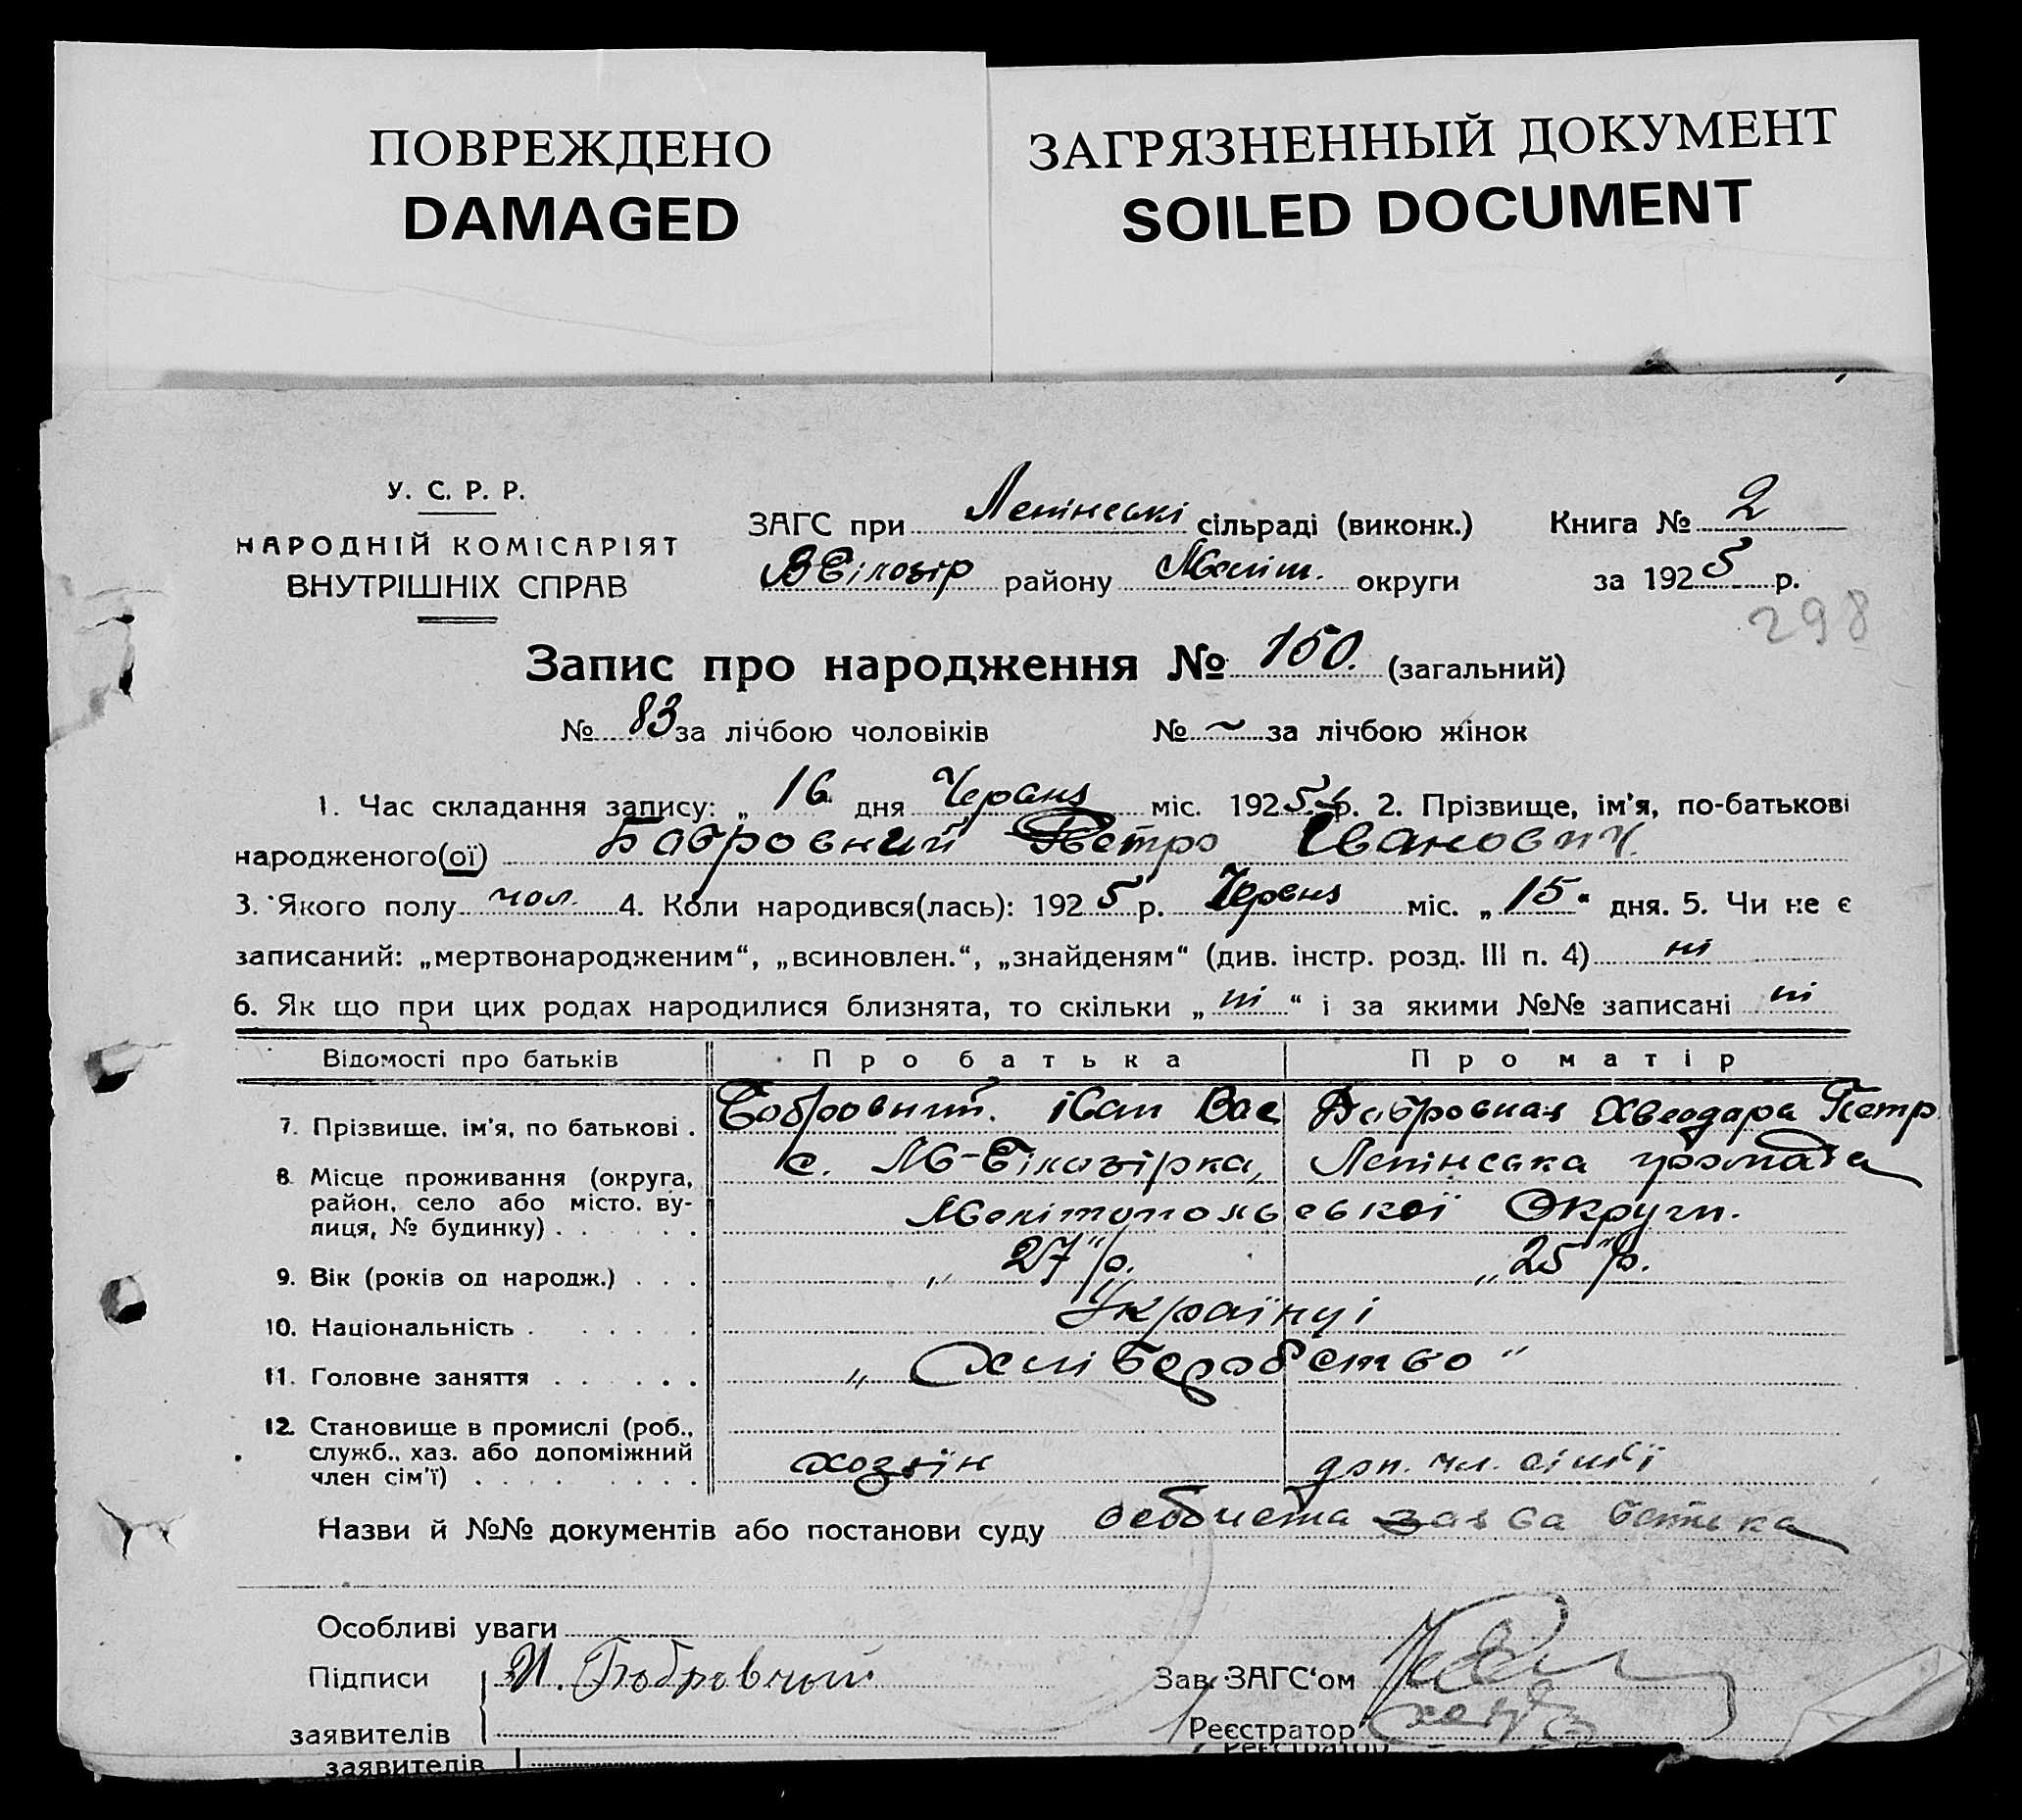 ПОВРЕЖДЕНО
DAMAGED
ЗАГРЯЗНЕННЫЙ ДОКУМЕНТ
SOILED DOCUMENT
У. С. Р. Р.
НАРОДНІЙ КОМІСАРІЯТ
ВНУТРІШНІХ СПРАВ
ЗАГС при Ленінські сільраді (виконк.)
Книга № 2
ВБілозір району Меліт. округи
за 1925 р.
298
Запис про народження № 150. (загальний)
№ 83 за лічбою чоловіків № ~ за лічбою жінок
1. Час складання запису: „ 16 дня Червня міс. 1925 р. 2. Прізвище, ім'я, по-батькові
народженого(ої) Бобровний Петро Іванович.
3. Якого полу чол. 4. Коли народився(лась): 1925 р. Червня міс. „15“ дня. 5. Чи не є
записаний: „мертвонародженим“, „всиновлен.“, „знайденям“ (див. інстр. розд. III п. 4) ні
6. Як що при цих родах народилися близнята, то скільки „ ні “ і за якими №№ записані ні
Відомості про батьків Про батька Про матір
7. Прізвище, ім'я, по батькові . Бобровний. Іван Вас Бобровная Хведора Петр.
8. Місце проживання (округа, с. МБ-Білозірка, Ленінська громада
район, село або місто, ву-
лиця, № будинку) . . . . . . Мелітопольської Округи.
9. Вік (років од народж.) . . . „27“ р. „25“ р.
10. Національність . . . . . . Українці
11. Головне заняття . . . . . . „Хліборобство“
12. Становище в промислі (роб.,
служб., хаз. або допоміжний
член сім'ї) . . . . . . . . хозяїн доп. чл. сімьї
Назви й №№ документів або постанови суду особиста заява батька
Особливі уваги
Підписи И. Бобровный Зав. ЗАГС'ом
заявителів Реєстратор
заявителів Реєстратор